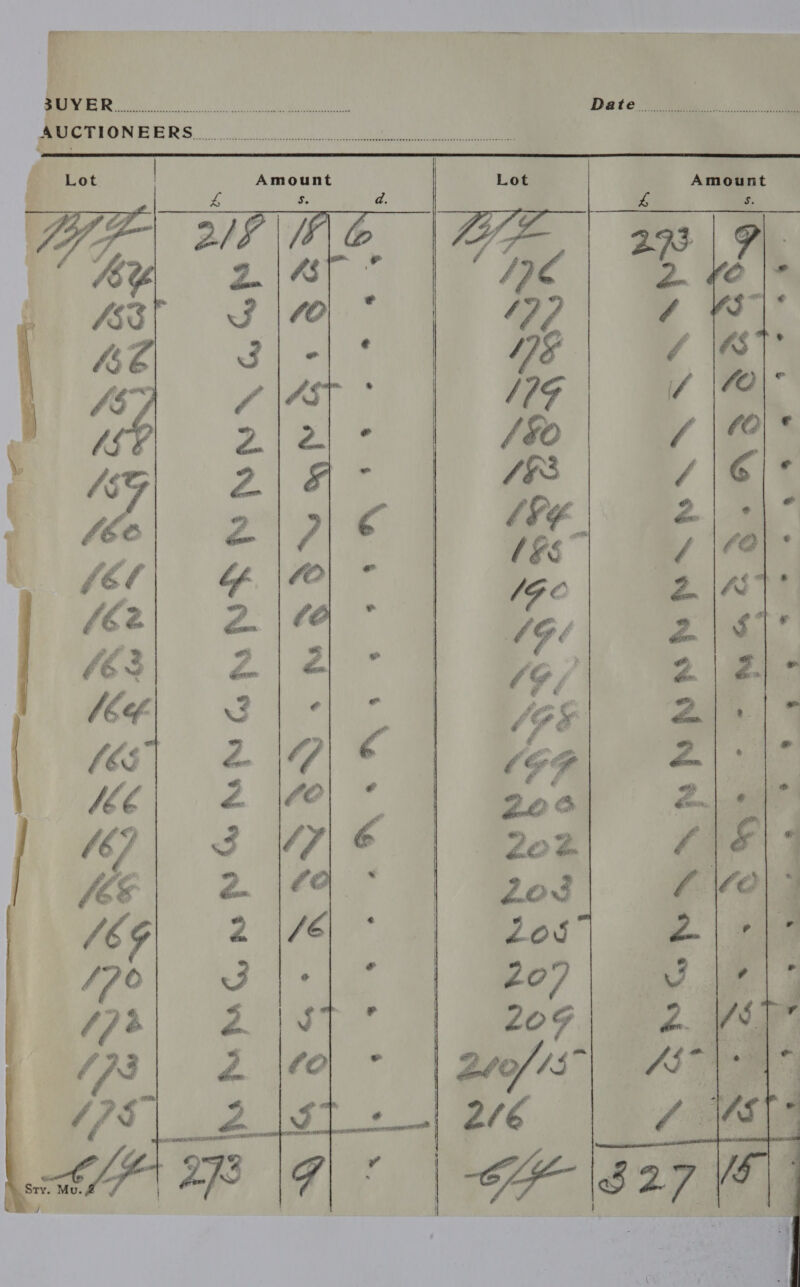 BUYER
AUCTIONEERS
Lot Amount
£ s. d.
B/F 218 18 6
154 2 15 .
153 3 10 .
156 3 . .
157 1 15 .
158 2 2 .
159 2 8 -
160 2 7 6
161 4 10 -
162 2 10 .
163 2 2 .
164 3 . .
165 2 17 6
166 2 10 .
167 3 17 6
168 2 10 .
169 2 16 .
170 3 . .
172 2 5 .
173 2 10 .
175 2 5 .
C/F 273 9 .
Sty. Mu. 2
Date
Lot Amount
£ s.
B/F 273 9 .
176 2 10 .
177 1 15 .
178 1 15 .
179 1 10 -
180 1 10 .
183 1 6 .
184 2 . .
185 1 10 .
190 2 15 .
191 2 5 .
197 2 2 .
198 2 . .
199 2 . .
200 2 . .
202 1 8 .
203 1 10 .
205 2 . .
207 3 . .
209 2 15 .
210/15 15 . .
216 1 15 .
C/F 327 15